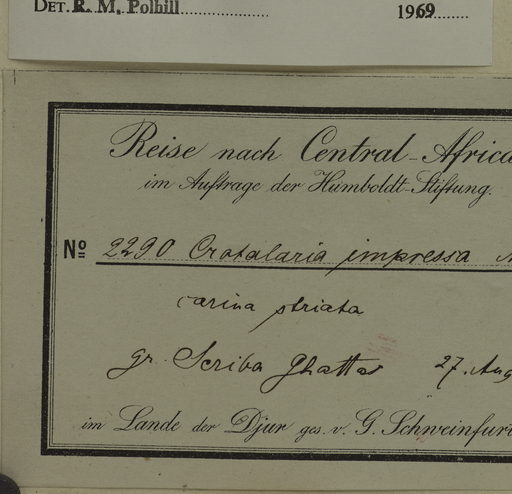 DET. R. M. Polhill 1969
Reise nach Central-Africa
im Auftrage der Humboldt-Stiftung.
No 2290 Crotalaria impressa
carina striata
gr. Scriba Ghattas 27. Aug
im Lande der Djur ges. v. G. Schweinfurt